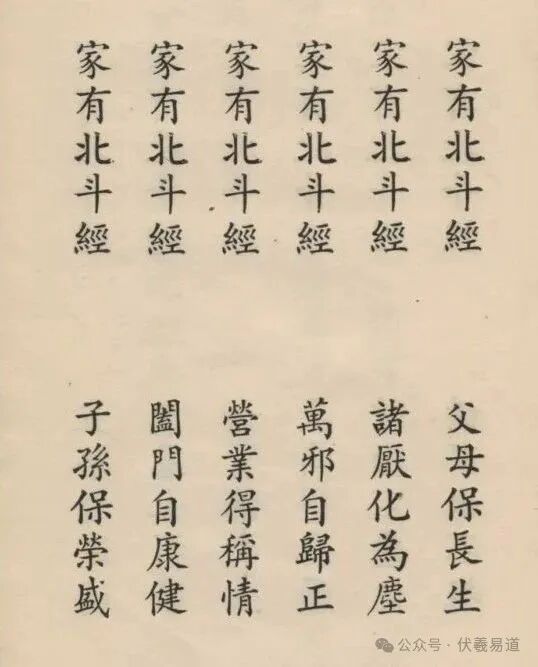 家有北斗經 父母保長生
家有北斗經 諸厭化為塵
家有北斗經 萬邪自歸正
家有北斗經 營業得稱情
家有北斗經 闔門自康健
家有北斗經 子孫保榮盛
公众号·伏羲易道